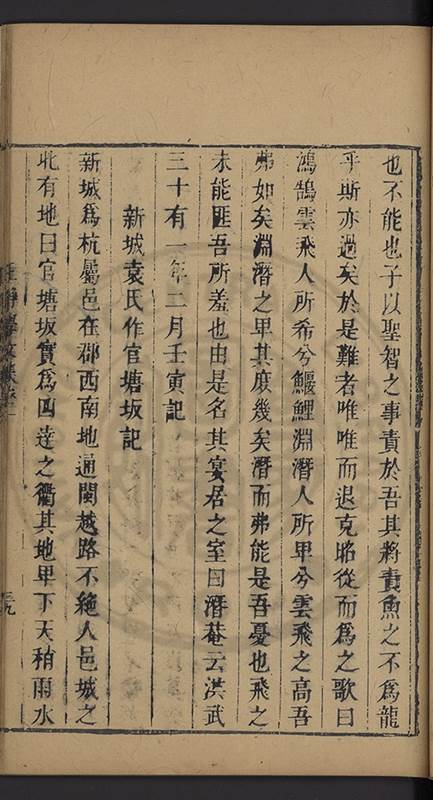 也不能也子以聖智之事責於吾其將責魚之不爲龍
乎斯亦過矣於是難者唯唯而退克昭從而爲之歌曰
鴻鵠雲飛人所希兮鰋鯉淵潛人所卑兮雲飛之高吾
弗如矣淵潛之卑其庶幾矣潛而弗能是吾憂也飛之
未能匪吾所羞也由是名其宴居之室曰潛菴云洪武
三十有一年二月壬寅記
新城袁氏作官塘坂記
新城爲杭屬邑在郡西南地通閩越路不絶人邑城之
北有地曰官塘坂實爲四達之衢其地卑下天稍雨水